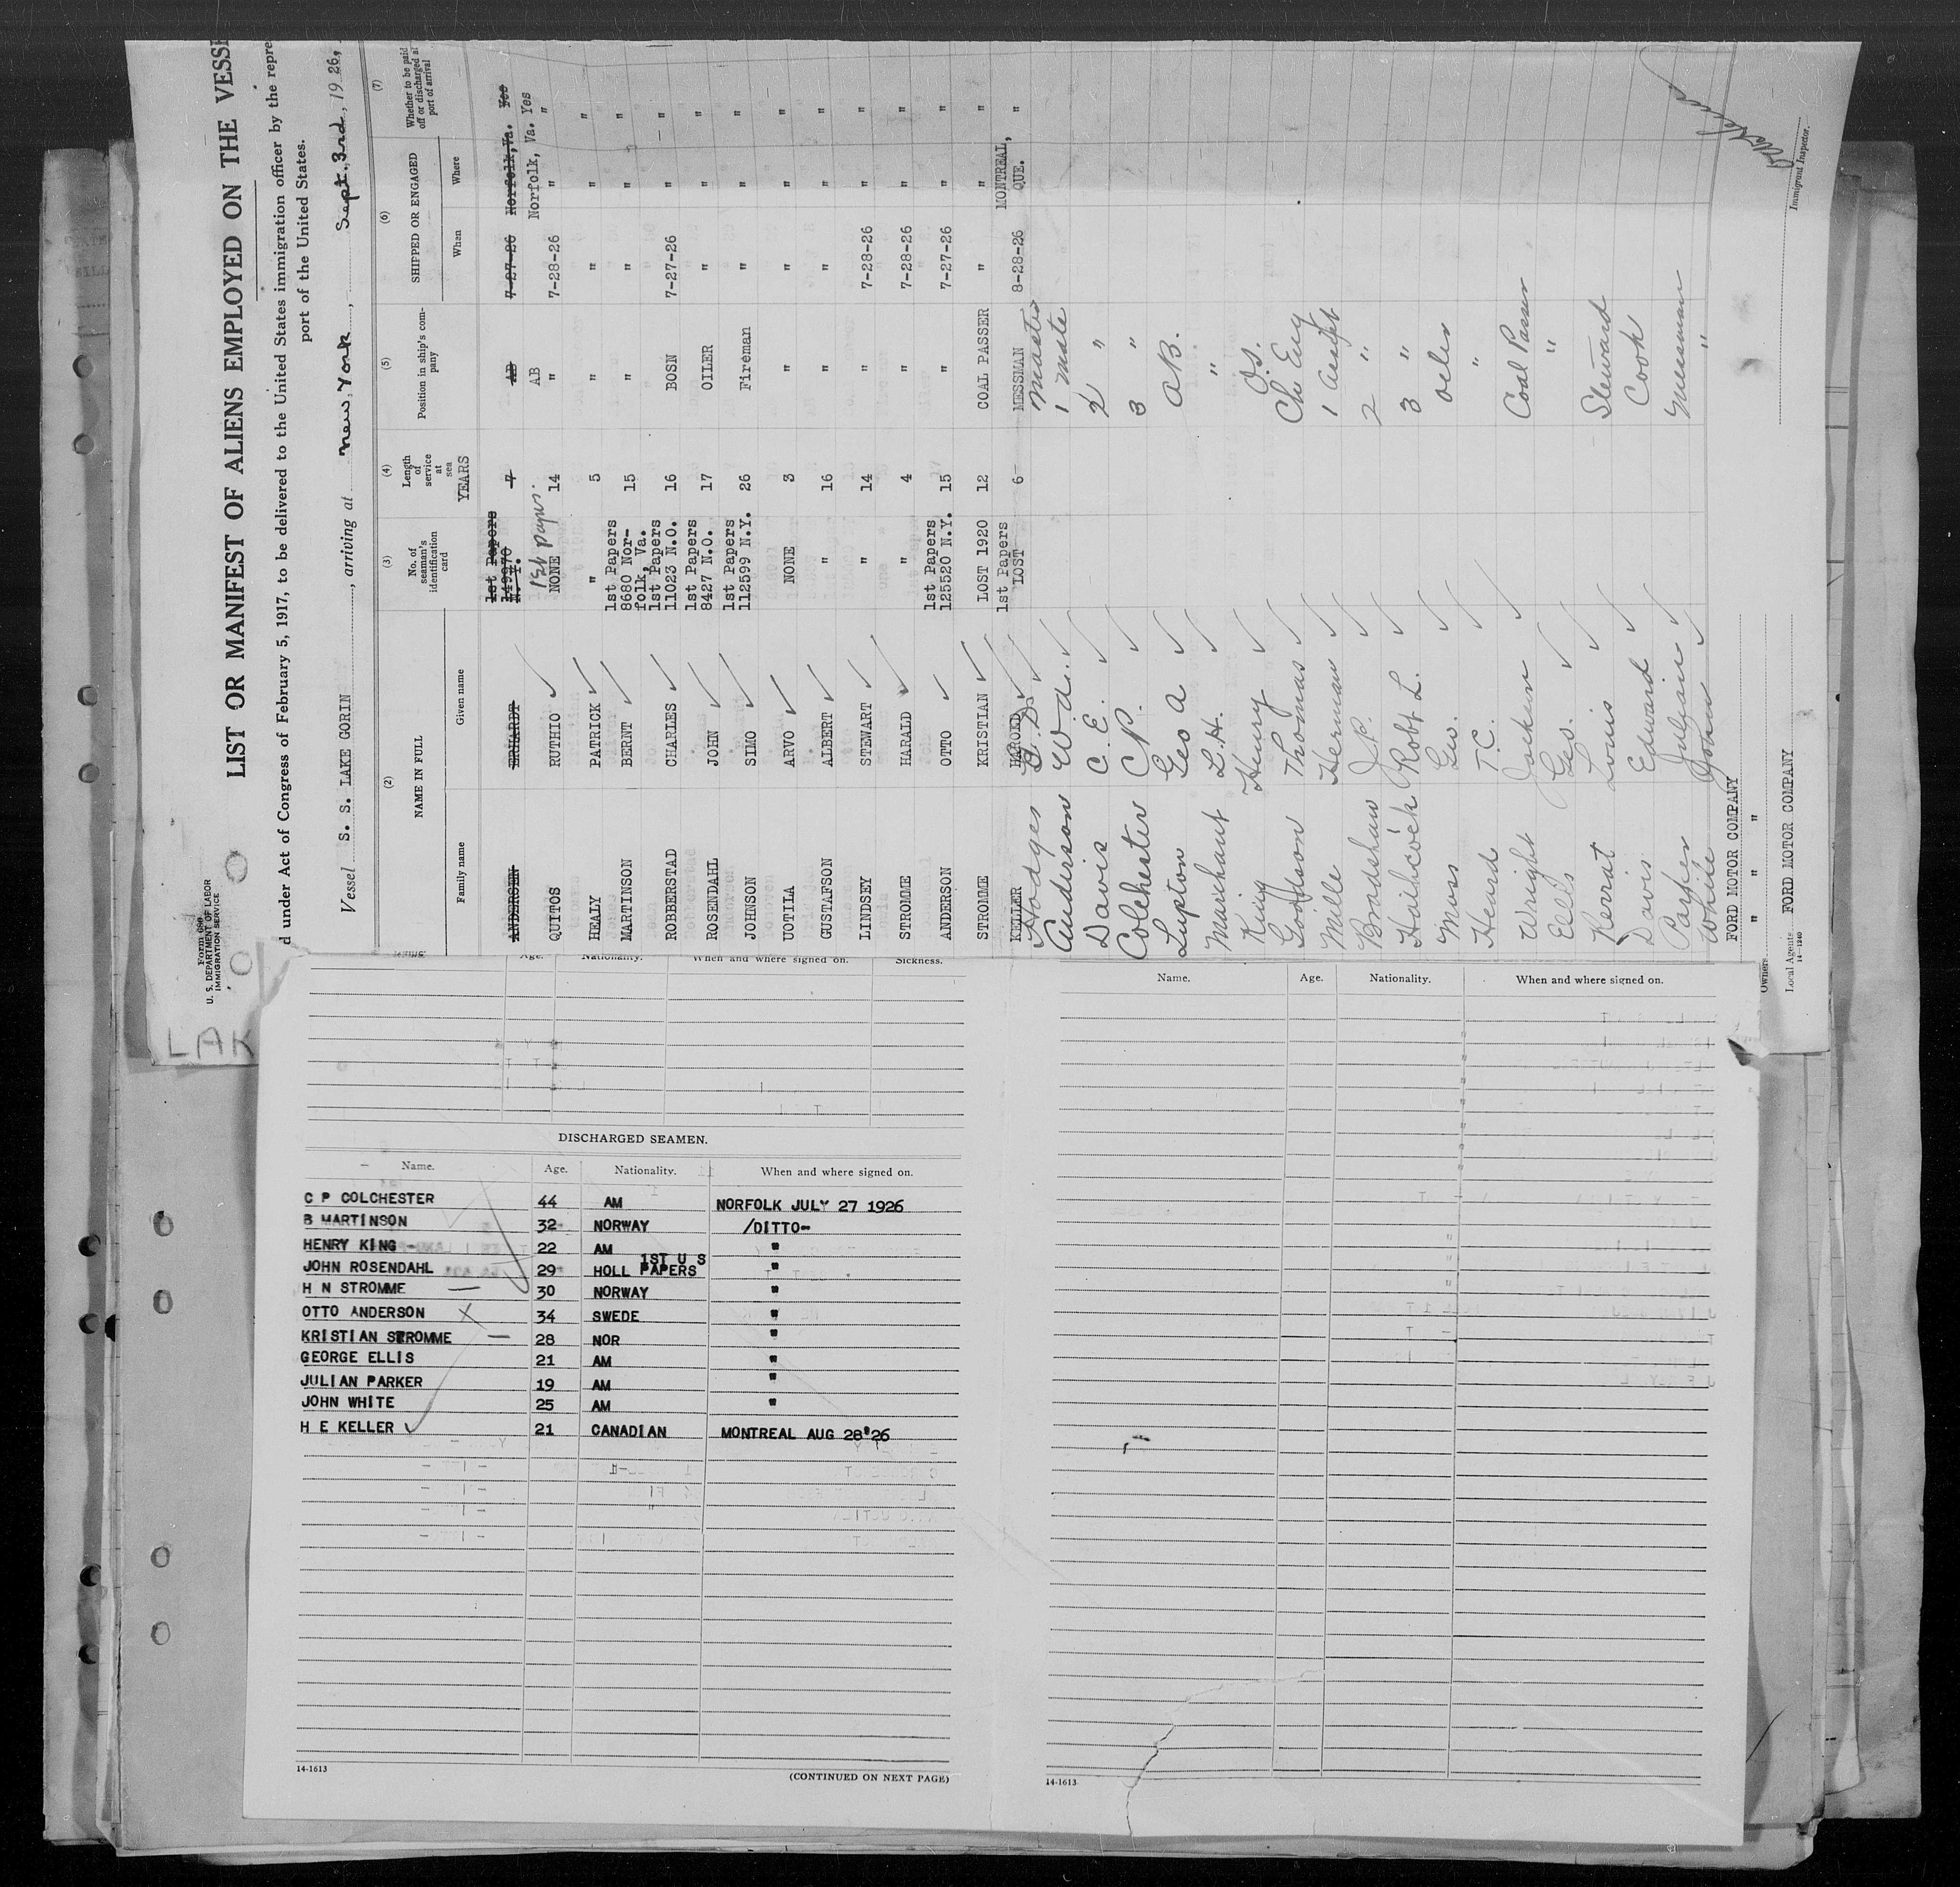 Form 689
U. S. DEPARTMENT OF LABOR
IMMIGRATION SERVICE
LIST OR MANIFEST OF ALIENS EMPLOYED ON THE VESSE
d under Act of Congress of February 5, 1917, to be delivered to the United States immigration officer by the repre
port of the United States.
Vessel S. S. LAKE GORIN, arriving at New York, Sept. 3rd, 1926,
(2) (3) (4) (5) (6) (7)
NAME IN FULL No. of seaman's identification card Length of service at sea Position in ship's company SHIPPED OR ENGAGED Whether to be paid off or discharged at port of arrival
Family name Given name YEARS When Where
ANDERSEN ERHARDT 1st Papers 149970 N.Y. 7 AB 7-27-26 Norfolk,Va. Yes
1st papers. AB Norfolk, Va. Yes
QUITOS RUTHIO NONE 14 " 7-28-26 " "
HEALY PATRICK " 5 " " " "
MARTINSON BERNT 1st Papers 8680 Norfolk, Va. 15 " " " "
ROBBERSTAD CHARLES 1st Papers 11023 N.O. 16 BOSN 7-27-26 " "
ROSENDAHL JOHN 1st Papers 8427 N.O. 17 OILER " " "
JOHNSON SIMO 1st Papers 112599 N.Y. 26 Fireman " " "
UOTILA ARVO NONE 3 " " " "
GUSTAFSON ALBERT " 16 " " " "
LINDSEY STEWART " 14 " 7-28-26 " "
STROMME HARALD " 4 " 7-28-26 " "
ANDERSON OTTO 1st Papers 125520 N.Y. 15 " 7-27-26 " "
STROMME KRISTIAN LOST 1920 12 COAL PASSER " " "
KELLER HAROLD 1st Papers LOST 6 MESSMAN 8-28-26 MONTREAL, QUE. "
Hodges Master
Anderson W.A. 1 Mate
Davis C. E. 2 "
Colchester C.P. 3 "
Lupton Geo A AB.
Marchant L.H. "
King Henry O.S.
Goodson Thomas Ch Eng
Mille Herman 1 Asst
Bradshaw J.P. 2 "
Haithcock Robt L. 3 "
Moss Geo. Oiler
Heard T.C. "
Wright Jacken Coal Passer
Ellis Geo. "
Kerrat Louis Steward
Davis Edward Cook
Parker Julian Messman
White John "
FORD MOTOR COMPANY
" " "
Owners
Local Agents FORD MOTOR COMPANY
14-1240
Immigrant Inspector.
LAK
Age. Nationality. When and where signed on. Sickness.
DISCHARGED SEAMEN.
Name. Age. Nationality. When and where signed on.
C P COLCHESTER 44 AM NORFOLK JULY 27 1926
B MARTINSON 32 NORWAY /DITTO-
HENRY KING 22 AM "
JOHN ROSENDAHL 29 HOLL 1ST U S PAPERS "
H N STROMME 30 NORWAY "
OTTO ANDERSON 34 SWEDE "
KRISTIAN STROMME 28 NOR "
GEORGE ELLIS 21 AM "
JULIAN PARKER 19 AM "
JOHN WHITE 25 AM "
H E KELLER 21 CANADIAN MONTREAL AUG 28'26
14-1613
(CONTINUED ON NEXT PAGE)
Name. Age. Nationality. When and where signed on.
14-1613